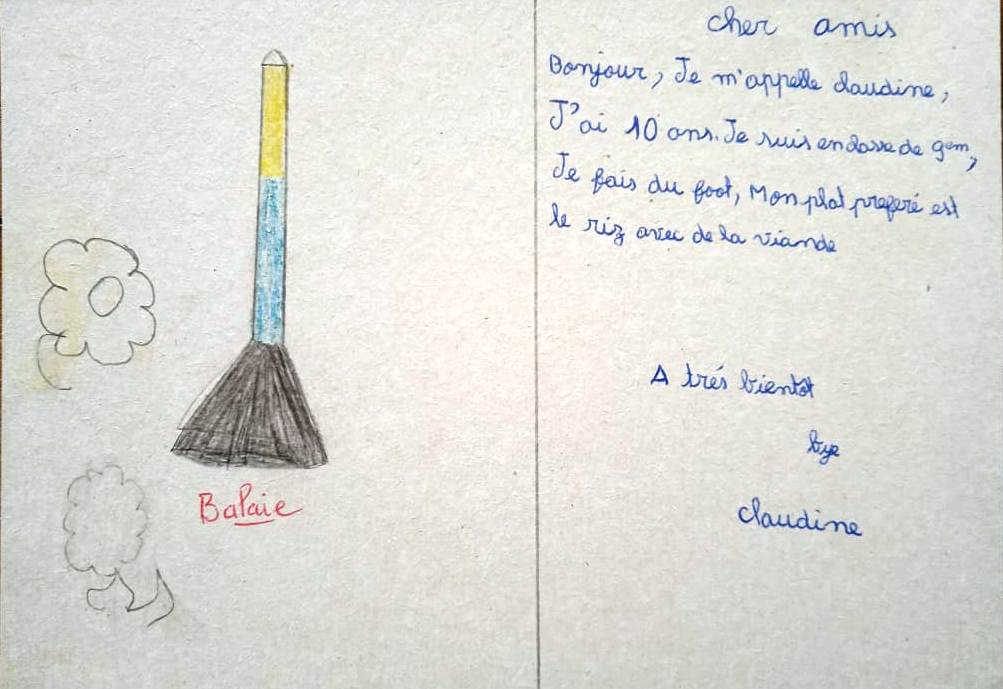 Balaie
cher amis
Bonjour, Je m'appelle claudine,
J'ai 10 ans. Je suis en classe de 9em,
Je fais du foot, Mon plat preferé est
le riz avec de la viande
A trés bientot
bye
claudine